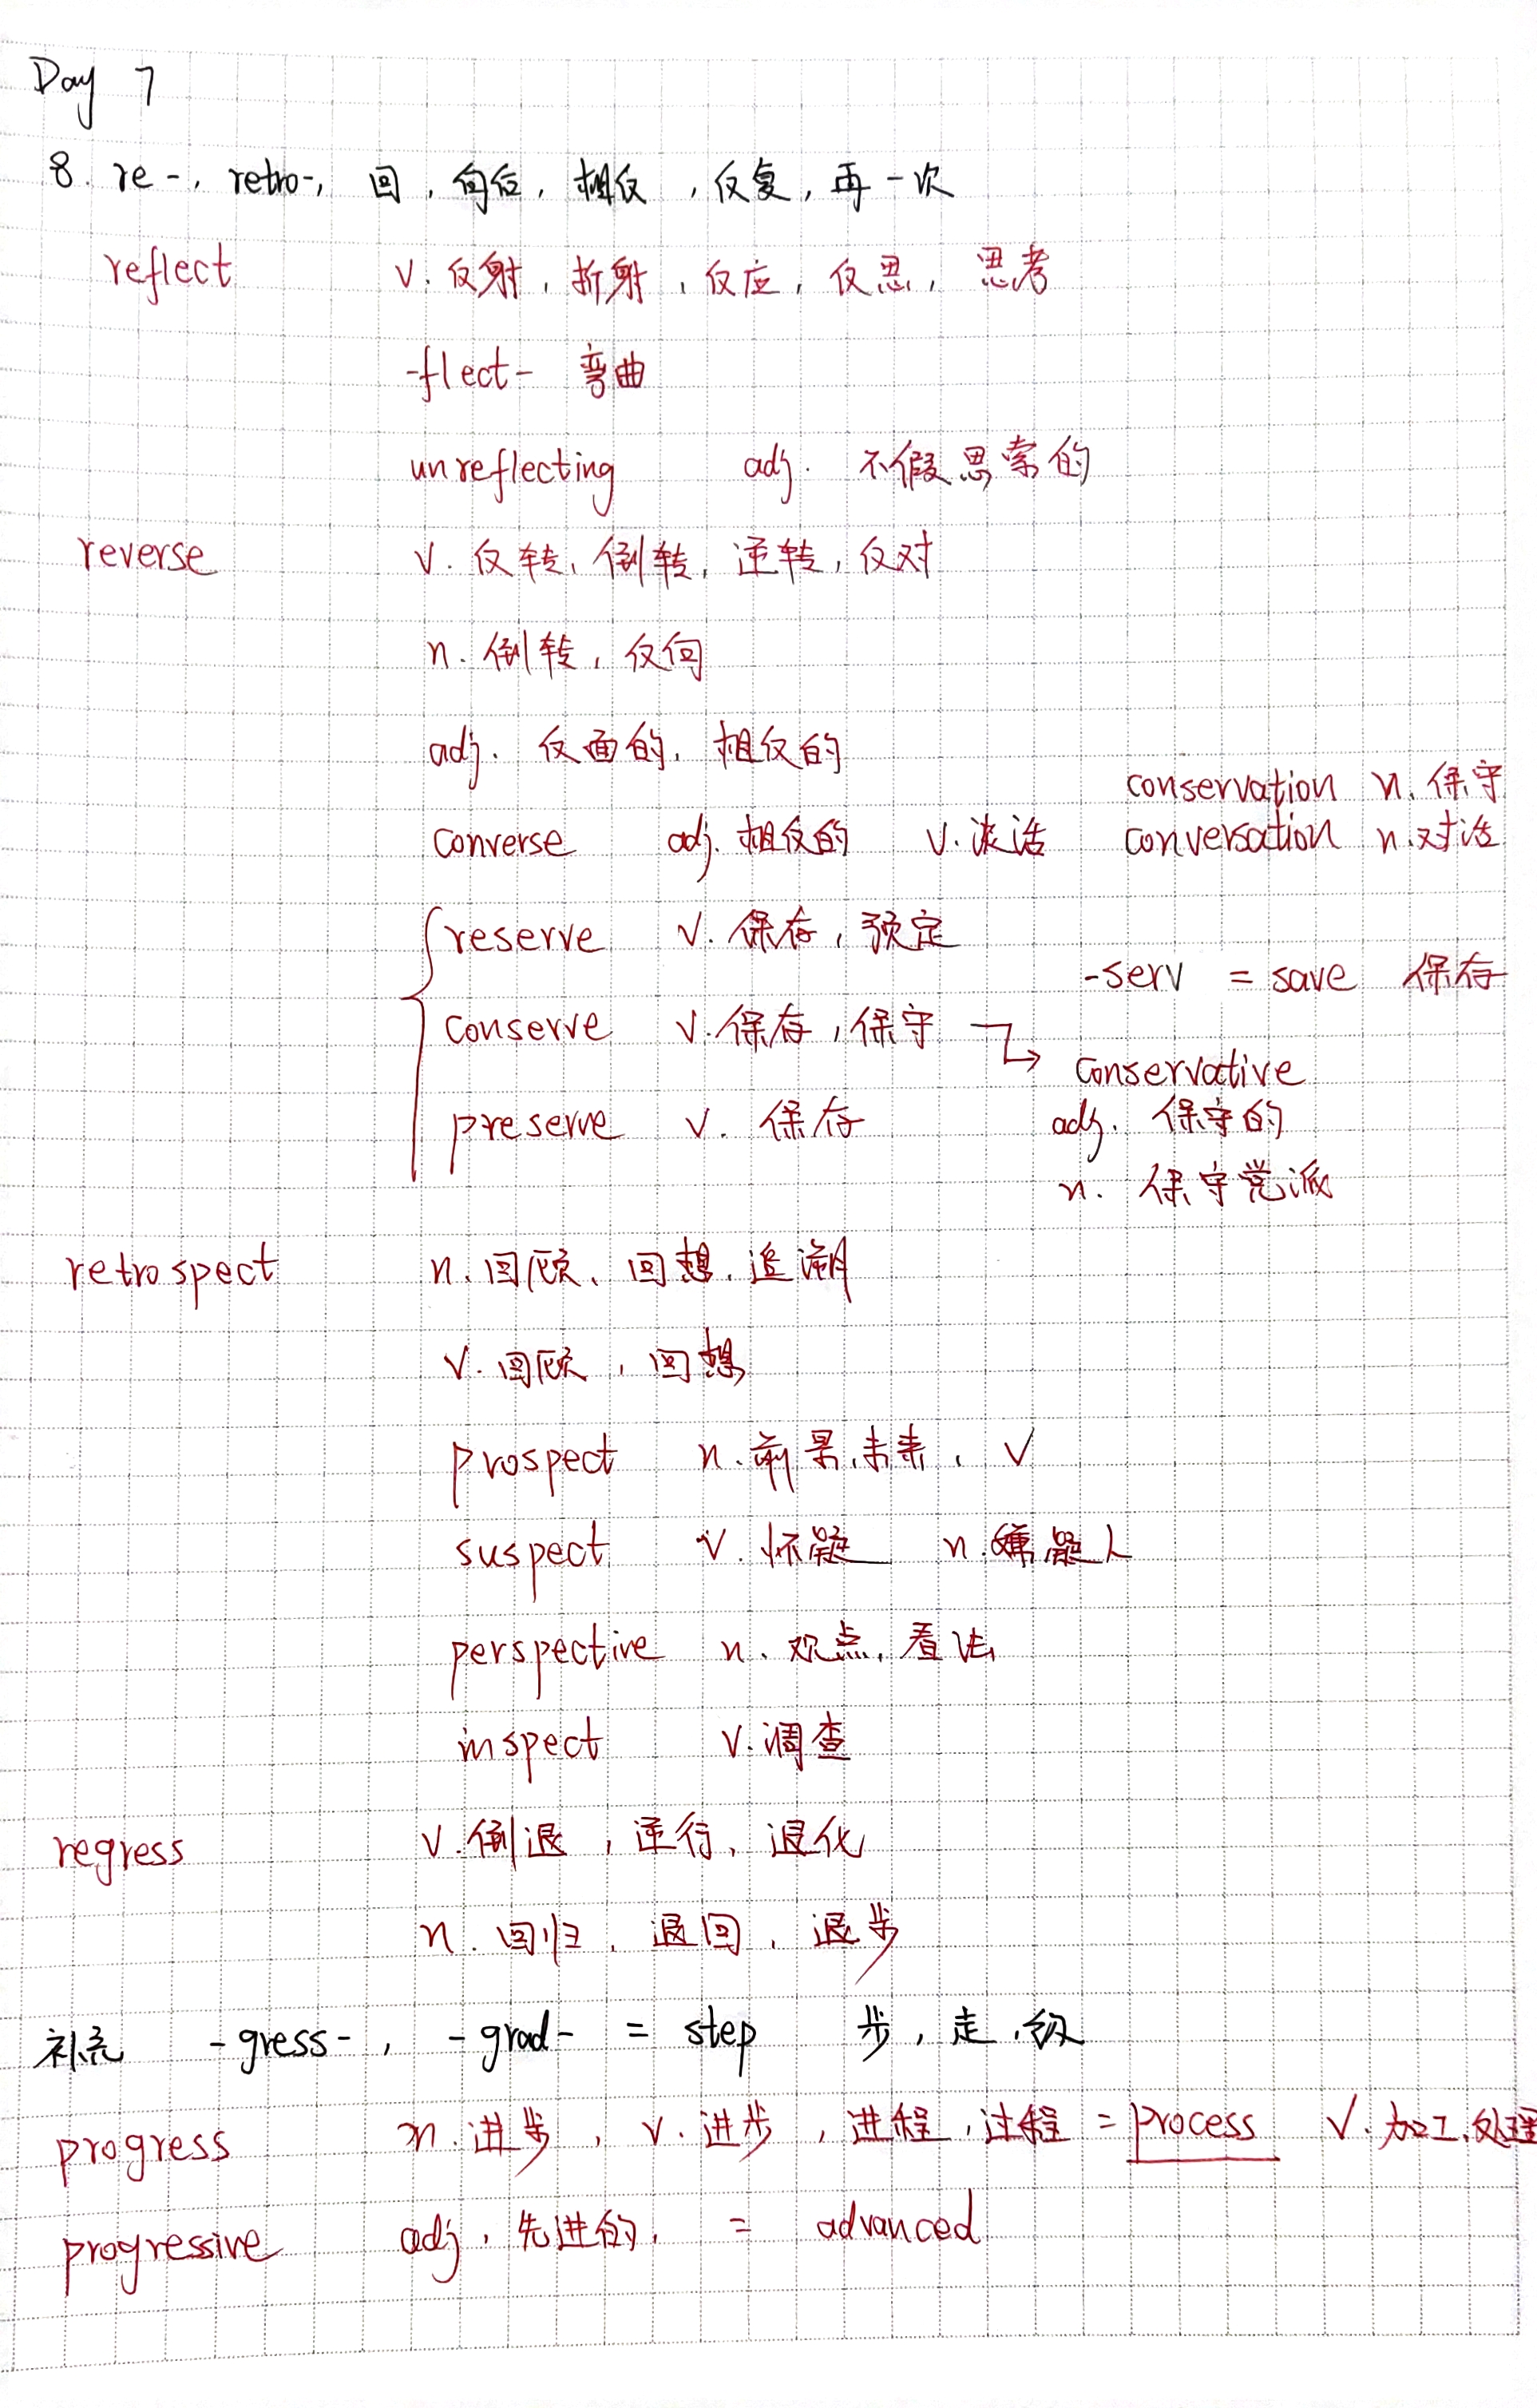 Day 7
8. re-, retro-, 回, 向后, 相反, 反复, 再一次
reflect v. 反射, 折射, 反应, 反思, 思考
-flect- 弯曲
unreflecting adj. 不假思索的
reverse v. 反转, 倒转, 逆转, 反对
n. 倒转, 反向
adj. 反面的, 相反的
conservation n. 保守
converse adj. 相反的 v. 谈话 conversation n. 对话
reserve v. 保存, 预定
-serv = save 保存
conserve v. 保存, 保守
conservative
preserve v. 保存 adj. 保守的
n. 保守党派
retrospect n. 回顾、回想, 追溯
v. 回顾, 回想
prospect n. 前景, 未来, v
suspect v. 怀疑 n. 嫌疑人
perspective n. 观点, 看法
inspect v. 调查
regress v. 倒退, 逆行, 退化
n. 回归, 退回, 退步
补充 -gress-, -grad- = step 步, 走, 级
progress n. 进步, v. 进步, 进程, 过程 = process v. 加工, 处理
progressive adj, 先进的, = advanced